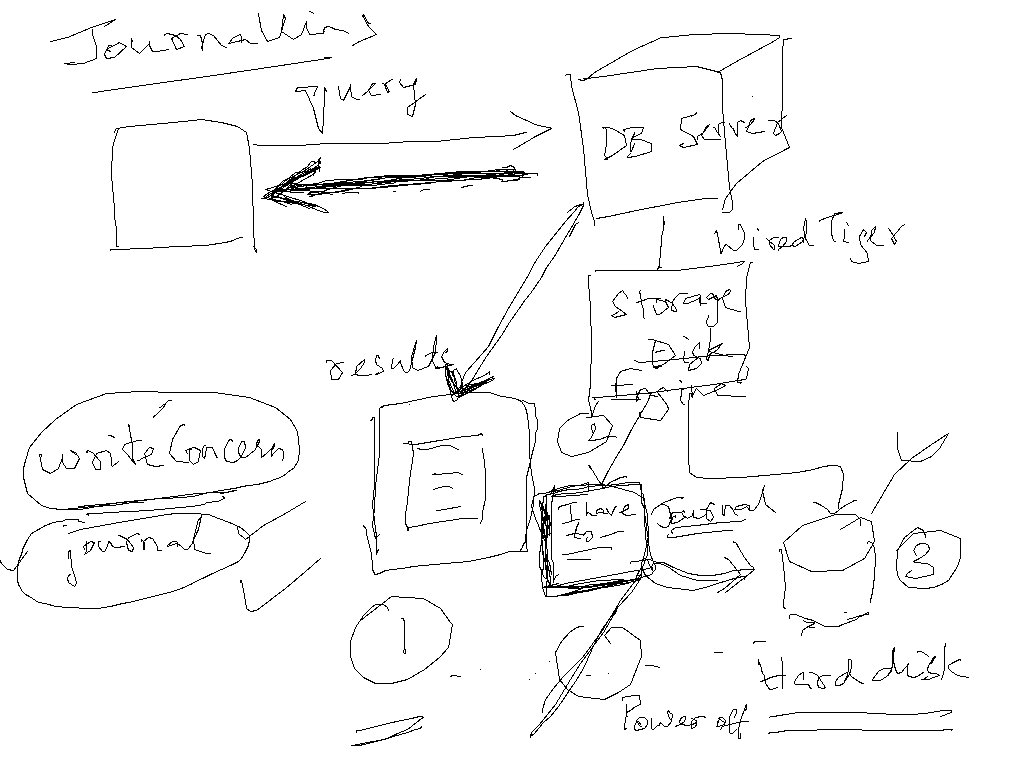 Journalling
query
DB Server
WiredTiger
Storage
Disk
Engine
results
2
writeConcern
I have
to
Journal
journal
3
1
Hard disk
Power off